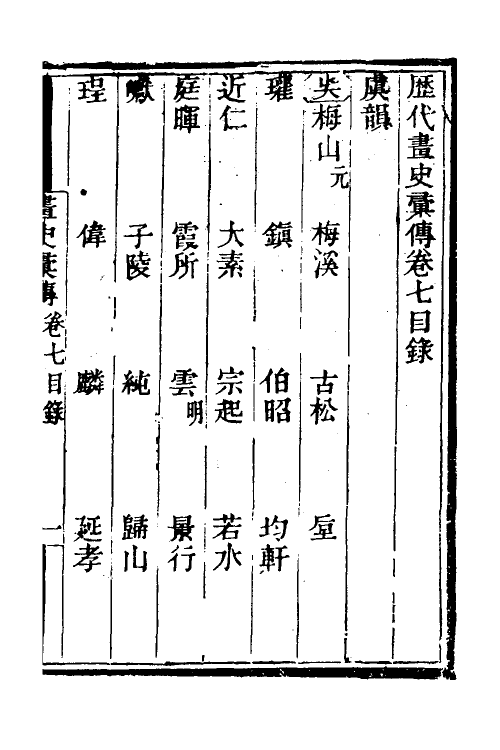 歷代畫史彙傳卷七目錄
虞韻
吳梅山元 梅溪 古松
瓘 鎮 伯昭 均軒
近仁 大素 宗起 若水
庭暉 霞所 雲明 景行
子陵 純 歸山
珵 偉 麟 延孝
畫史彙傳卷七目錄 一